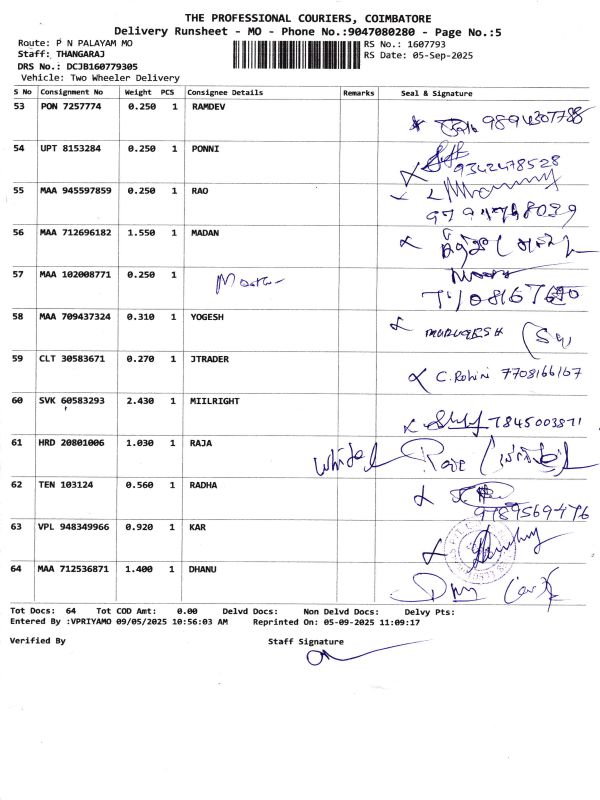 THE PROFESSIONAL COURIERS, COIMBATORE
Delivery Runsheet - MO - Phone No.:9047080280 - Page No.:5
Route: P N PALAYAM MO
RS No.: 1607793
Staff: THANGARAJ
RS Date: 05-Sep-2025
DRS No.: DCJB160779305
Vehicle: Two Wheeler Delivery
S No Consignment No Weight PCS Consignee Details Remarks Seal & Signature
53 PON 7257774 0.250 1 RAMDEV
54 UPT 8153284 0.250 1 PONNI
9342478528
55 MAA 945597859 0.250 1 RAO
56 MAA 712696182 1.550 1 MADAN
57 MAA 102008771 0.250 1
58 MAA 709437324 0.310 1 YOGESH
MURUGESH
59 CLT 30583671 0.270 1 JTRADER
C. Rohini 7708166167
60 SVK 60583293 2.430 1 MIILRIGHT
7845003871
61 HRD 20801006 1.030 1 RAJA
62 TEN 103124 0.560 1 RADHA
9789569476
63 VPL 948349966 0.920 1 KAR
64 MAA 712536871 1.400 1 DHANU
Tot Docs: 64 Tot COD Amt: 0.00 Delvd Docs: Non Delvd Docs: Delvy Pts:
Entered By :VPRIYAMO 09/05/2025 10:56:03 AM Reprinted On: 05-09-2025 11:09:17
Verified By Staff Signature